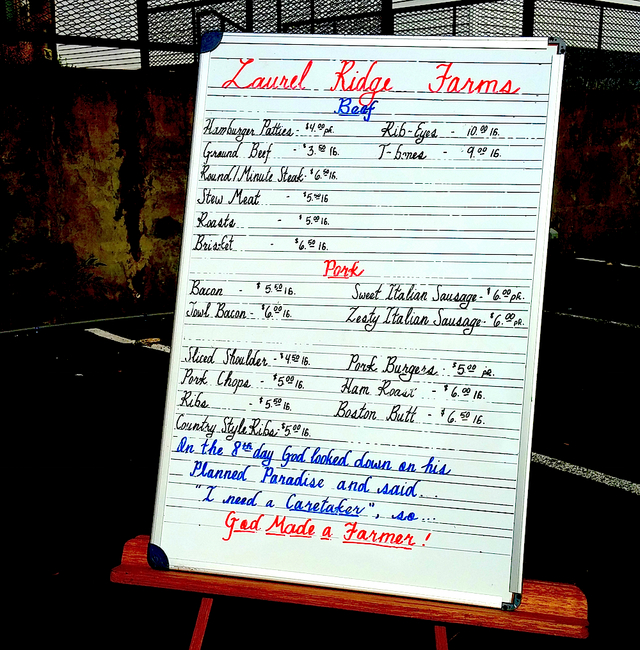 Laurel Ridge Farms
Beef
Hamburger Patties - $4.00 pk. Rib-Eyes - 10.00 lb.
Ground Beef - $3.50 lb. T-bones - 9.00 lb.
Round/Minute Steak - $6.00 lb.
Stew Meat - $5.00 lb.
Roasts - $5.00 lb.
Brisket - $6.50 lb.
Pork
Bacon - $5.50 lb. Sweet Italian Sausage - $6.00 pk.
Jowl Bacon - $6.00 lb. Zesty Italian Sausage - $6.00 pk.
Sliced Shoulder - $4.50 lb. Pork Burgers - $5.00 pk.
Pork Chops - $5.00 lb. Ham Roast - $6.00 lb.
Ribs - $5.50 lb. Boston Butt - $6.50 lb.
Country Style Ribs $5.00 lb.
On the 8th day God looked down on his
Planned Paradise and said...
"I need a Caretaker", so...
God Made a Farmer!